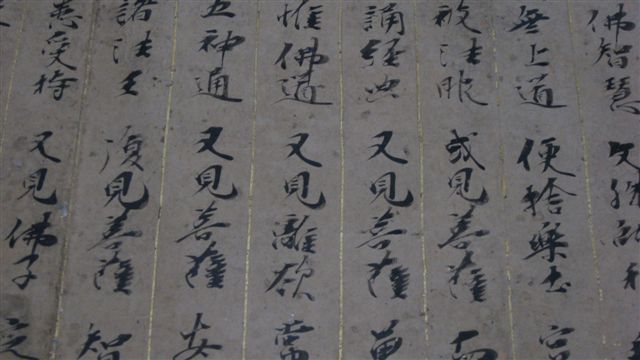 佛智慧 文殊師利
無上道 便捨樂土 宮
被法服 或見菩薩 而
誦經典 又見菩薩
惟佛道 又見離欲 常
五神通 又見菩薩 安
諸法王 復見菩薩 智
悉受持 又見佛子 定